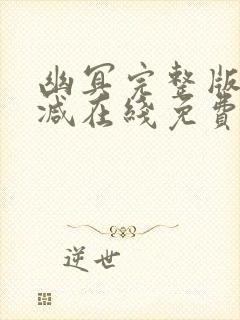 幽冥完整版
减在綫免費
逆世